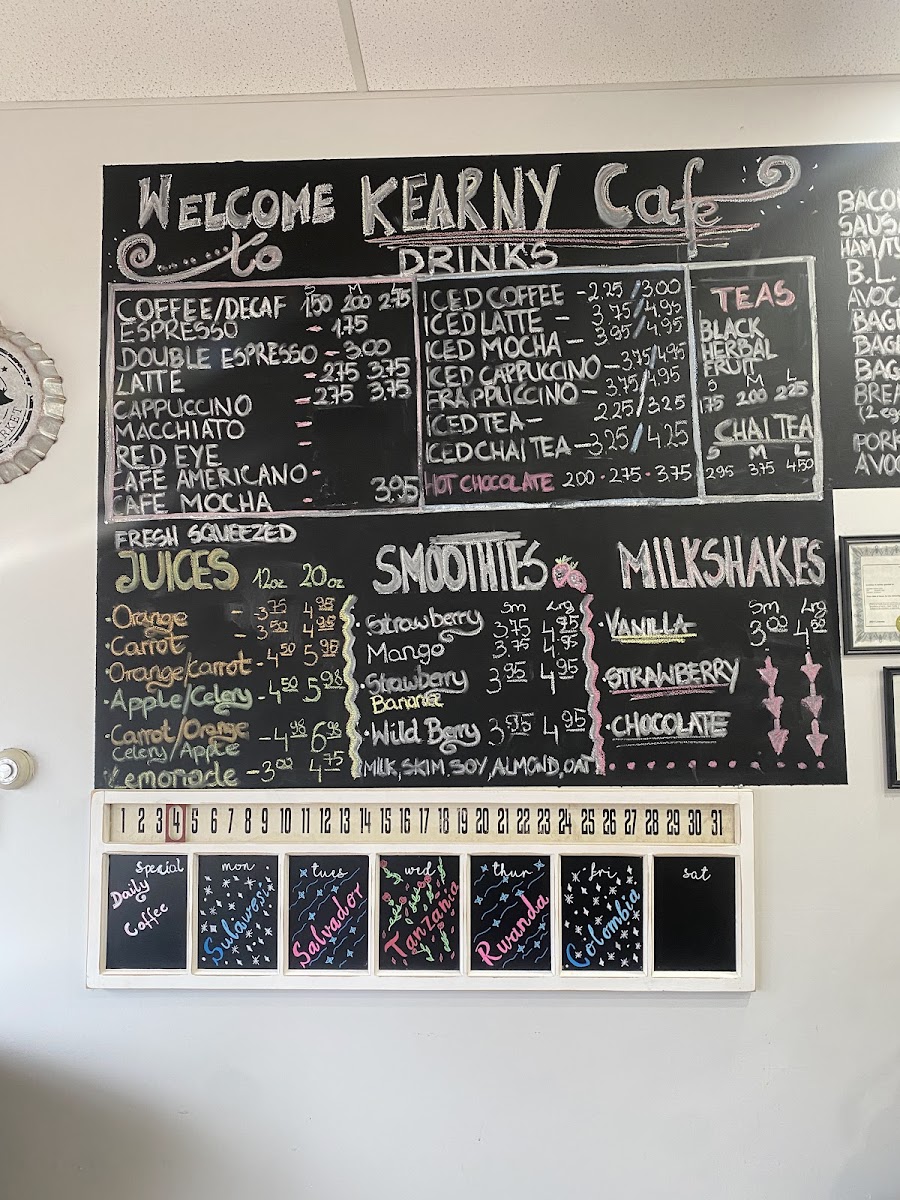 WELCOME KEARNY Cafe
to
DRINKS
S M L
COFFEE/DECAF 150 200 275
ESPRESSO - 1.75
DOUBLE ESPRESSO - 3.00
LATTE - 275 3.75
CAPPUCCINO - 275 3.75
MACCHIATO -
RED EYE -
CAFE AMERICANO -
CAFE MOCHA - 3.95
ICED COFFEE - 2.25 / 3.00
ICED LATTE - 3.75 / 4.95
ICED MOCHA - 3.95 / 4.95
ICED CAPPUCCINO - 3.75 / 4.95
FRAPPUCCINO - 3.75 / 4.95
ICED TEA - 2.25 / 3.25
ICED CHAI TEA - 3.25 / 4.25
HOT CHOCOLATE 200 - 275 - 3.75
TEAS
BLACK
HERBAL
FRUIT
S M L
175 200 225
CHAI TEA
S M L
295 375 4.50
BACO
HAM/T
B.L.
AVOC
BAG
BAG
BAG
BREA
PORK
AVOC
FRESH SQUEEZED
JUICES 12oz 20oz
·Orange - 3.75 4.95
·Carrot - 3.50 4.95
·Orange/carrot - 4.50 5.95
·Apple/Celery - 4.50 5.98
·Carrot/Orange - 4.98 6.98
Celery/Apple
Lemonade - 3.00 4.75
SMOOTHIES
Sm Lrg
·Strawberry 3.75 4.95
Mango 3.75 4.95
·Strawberry 3.95 4.95
Banana
·Wild Berry 3.95 4.95
MILK, SKIM, SOY, ALMOND, OAT
MILKSHAKES
Sm Lrg
·VANILLA 3.00 4.50
·STRAWBERRY
·CHOCOLATE
1 2 3 4 5 6 7 8 9 10 11 12 13 14 15 16 17 18 19 20 21 22 23 24 25 26 27 28 29 30 31
Special
Daily
Coffee
mon
Sulawesi
tues
Salvador
wed
Tanzania
thur
Rwanda
fri
Colombia
sat